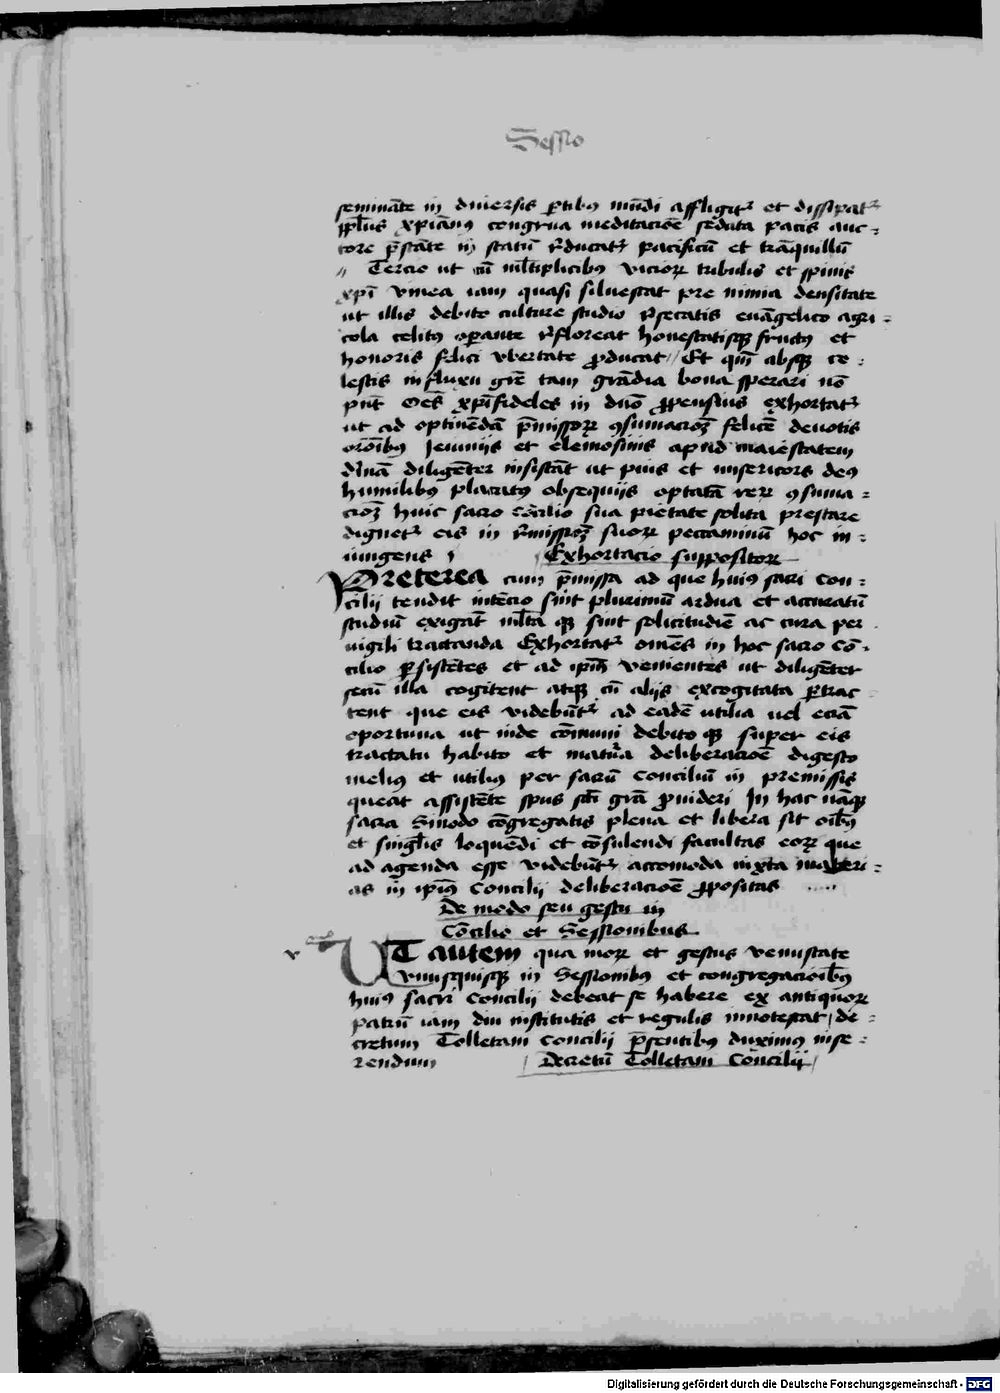 Sessio
semināte in diuersis p̱tibus mūdi affligitʳ et dissipatʳ
pp̄lus xp̄ianus congrua meditacioē sedata pacis auc=
tore p̄stāte in statū rͤducatʳ pacificū et trāquillū
// Tercio ut cū ml̄tiplicibꝰ vicioꝝ tribulis et spinis
xpī vinea iam quasi siluescat pre nimia densitate
ut illis debito culture studio p̱secatis euāgelico agri=
cola celitꝰ oꝑante rͤfloreat honestatisqꝫ fructꝰ et
honoris felici vbertate ꝓducat // Et qm̄ absqꝫ ce=
lestis influxu grē tam grādia bona sperari nō
pn̄t Oēs xp̄ifideles in dn̄o ꝓpensius exhortatʳ
ut ad optinēdā p̄missoꝝ ꝯsumacioꝫ felicē deuotis
orōibꝰ Ieiuniis et elemosinis apud maiestatem
diuīnā diligēter insistāt ut pius et misericors deꝰ
humilibꝰ placatꝰ obsequiis optatā reꝝ ꝯsuma=
cioꝫ huic sacro cōcilio sua pietate solita prestare
dignetʳ eis in rͤmissioꝫ suoꝝ peccaminū hoc in=
iungens
Exhortacio suppositoꝝ
Preterea cum p̄missa ad que huiꝰ sacri con=
cilij tendit intēcio sint plurimū ardua et accuratū
studiū exigāt ml̄ta qꝫ sint solicitudiē ac cura per
uigili tractanda Exhortatʳ omēs in hoc sacro cō=
cilio ꝑsistētes et ad ipm̄ venientes ut diligēter
secū illa cogitent atqꝫ cū alijs excogitata ꝑtrac=
tent que eis videbūtʳ ad eadē utilia uel eciā
oportuna ut inde cōmuni debito qꝫ super eis
tractatu habito et matura deliberacioē digesto
meliꝰ et utiliꝰ per sacrū Conciliū in premissis
queat assistēte spūs sc̄ti grā ꝓuideri In hac nāqꝫ
sacra Sinodo cōgregatis plena et libera sit oībꝰ
et singl̄is loquēdi et cōsulendi facultas eoꝝ que
ad agenda esse videbūtʳ accomoda iuxta materi=
as in ipīꝰ Concilij deliberacioē ꝓpositas
De modo seu gestu in
Cōcilio et Sessionibus
UT autem qua moꝝ et gestus venustate
vnusquisqꝫ in Sessionibꝰ et congregacioībꝰ
huiꝰ sacri Concilij debeat se habere ex antiquoꝝ
patrū iam diu institutis et regulis innotescat / de=
cretum Tolletani Concilij p̄sentibꝰ duximꝰ inse=
rendum
Decretū Tolletani Concilij
Digitalisierung gefördert durch die Deutsche Forschungsgemeinschaft - DFG